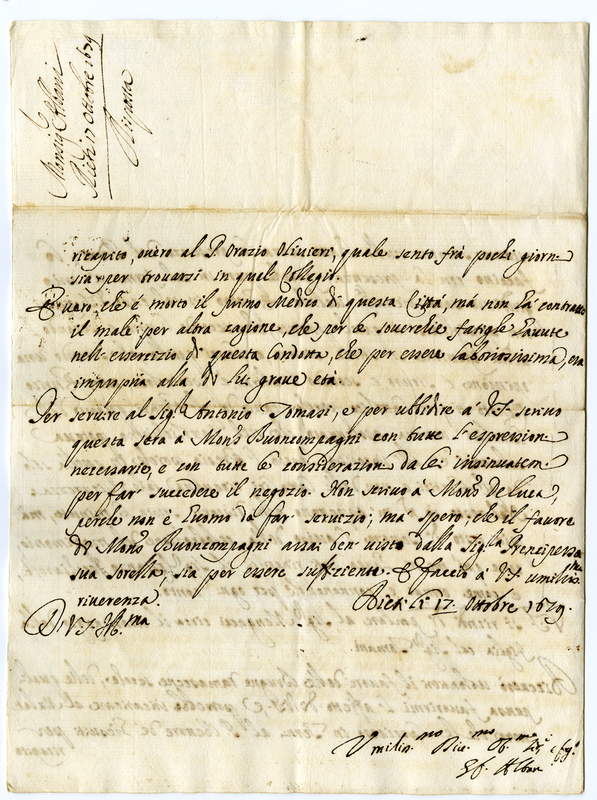 Monsig. Albani
Rieti 17 Ottobre 1679
Risposta
ricapito, overo al P. Orazio Olivieri, quale sento frà pochi giorni
sia per trovarsi in quel Collegio.
È vero, che è morto il primo Medico di questa Città, mà non hà contratto
il male per altra cagione, che per le soverchie fatighe havute
nell'essercizio di questa Condotta, che per essere laboriosissima, era
impropiia alla di lui grave età.
Per servire al Sig. Antonio Tomasi, e per ubbidire à V.S. scrivo
questa sera à Mons. Buoncompagni con tutte l'espressioni
necessarie, e con tutte le considerazioni da lei insinuatemi
per far succedere il negozio. Non scrivo à Mons. De Luca,
perche non è huomo da far servizio; mà spero, che il favore
di Mons. Buoncompagni assai ben visto dalla Sig.la Prencipessa
sua sorella, sia per essere suffiziente. E faccio à V.S. umilis.ma
riverenza. Rieti li 17. Ottobre 1679.
Di V.S. Ill.ma
Umilis.mo Dev.mo Ob.mo